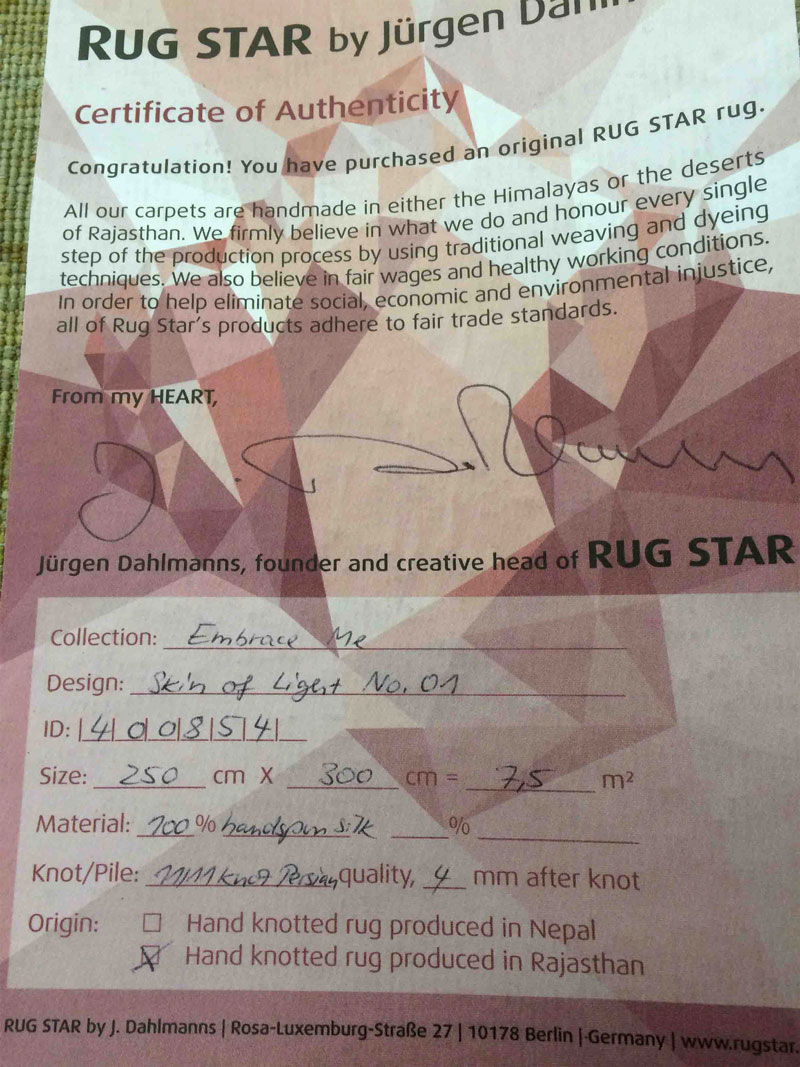 RUG STAR by Jürgen
Certificate of Authenticity
Congratulation! You have purchased an original RUG STAR rug.
All our carpets are handmade in either the Himalayas or the deserts
of Rajasthan. We firmly believe in what we do and honour every single
step of the production process by using traditional weaving and dyeing
techniques. We also believe in fair wages and healthy working conditions.
In order to help eliminate social, economic and environmental injustice,
all of Rug Star's products adhere to fair trade standards.
From my HEART,
Jürgen Dahlmanns, founder and creative head of RUG STAR
Collection: Embrace Me
Design: Skin of Light No. 01
ID: |4|0|0|8|5|4|
Size: 250 cm X 300 cm = 7,5 m²
Material: 100 % handspun silk %
Knot/Pile: knot Persian quality, 4 mm after knot
Origin: ☐ Hand knotted rug produced in Nepal
☒ Hand knotted rug produced in Rajasthan
RUG STAR by J. Dahlmanns | Rosa-Luxemburg-Straße 27 | 10178 Berlin | Germany | www.rugstar.